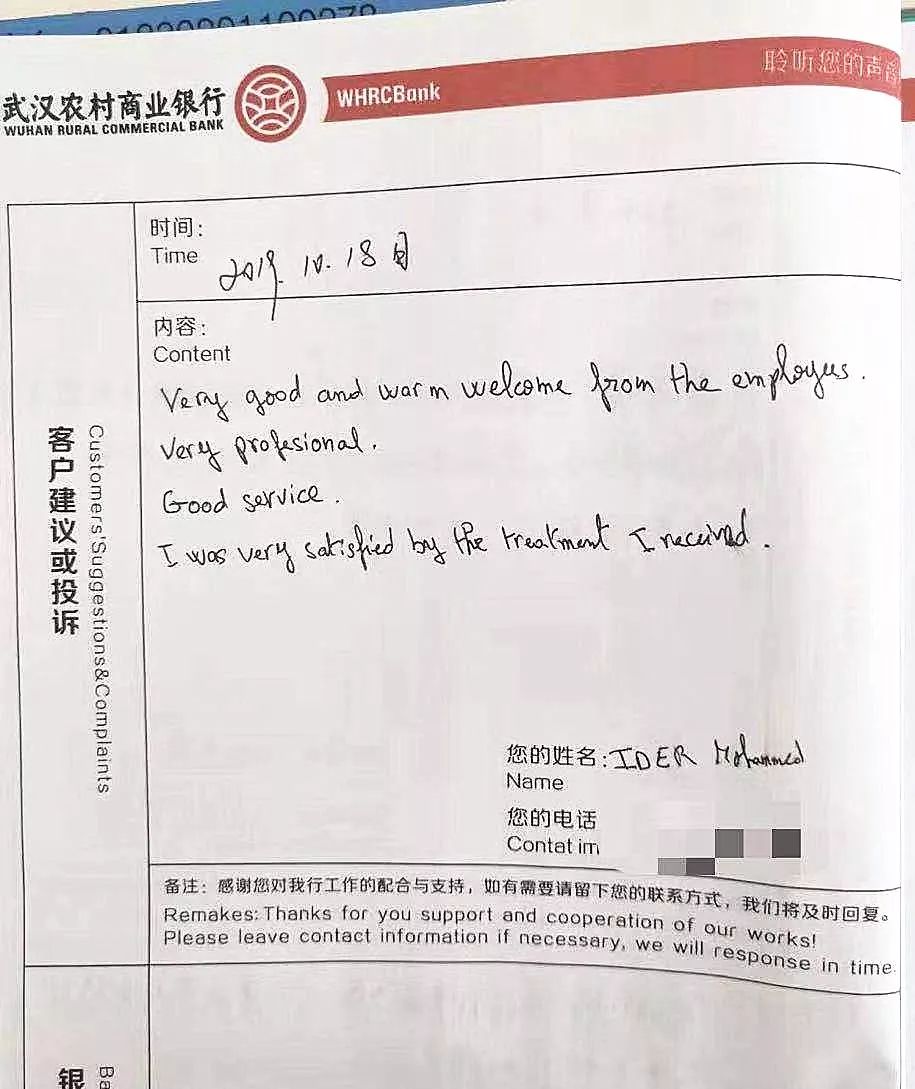 武汉农村商业银行
WUHAN RURAL COMMERCIAL BANK
WHRCBank
聆听您的声音
时间:
Time
2019. 10. 18日
内容:
Content
Very good and warm welcome from the employees.
Very profesional.
Good service.
I was very satisfied by the treatment I received.
客户建议或投诉
Customers'Suggestions&Complaints
您的姓名:IDER Mohammed
Name
您的电话
Contat im
备注: 感谢您对我行工作的配合与支持，如有需要请留下您的联系方式，我们将及时回复。
Remakes: Thanks for you support and cooperation of our works!
Please leave contact information if necessary, we will response in time.
银
Ba